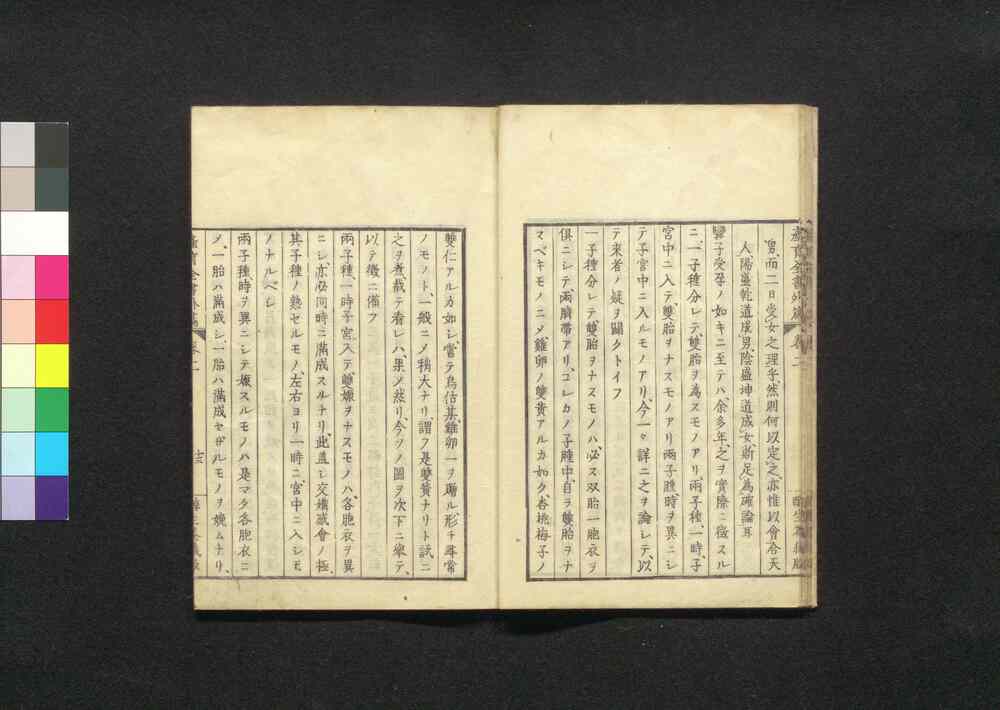 男、而二日受女之理乎、然則何以定之、亦惟以會合天
人、陽盛乾道成男、陰盛坤道成女、斯足為確論耳
孿子受孕ノ如キニ至テハ、余多年、之ヲ實際ニ徴スル
ニ、一子種分レテ、雙胎ヲ為スモノアリ、兩子種、一時、子
宮中ニ入テ、雙胎ヲナスモノアリ、兩子種、時ヲ異ニシ
テ子宮中ニ入ルモノアリ、今一々詳ニ之ヲ論シテ、以
テ来者ノ疑ヲ闢クトイフ
一子種分レテ雙胎ヲナスモノハ、必ス双胎一胞衣ヲ
俱ニシテ、兩臍帯アリ、コレカノ子種中、自ヲ雙胎ヲナ
スベキモノニメ、雞卵ノ雙黄アルカ如ク、杏桃梅子ノ
雙仁アルカ如シ、嘗テ烏估某、雞卵一ヲ贈ル、形チ尋常
ノモノト、一般ニメ稍大ナリ、謂フ是雙黄ナリト、試ニ
之ヲ煮、截テ看レハ、果メ然リ、今ソノ圖ヲ次下ニ擧テ、
以テ徴ニ備フ
兩子種、一時子宮ニ入テ、雙孃ヲナスモノハ、各胞衣ヲ異
ニシ、亦必同時ニ滿成スルナリ、此盖シ交媾感會ノ極、
其子種ノ熟セルモノ、左右ヨリ一時ニ、宮中ニ入シモ
ノナルベシ
兩子種時ヲ異ニシテ孃スルモノハ、是マタ各胞衣ニ
メ、一胎ハ滿成シ、一胎ハ滿成セザルモノヲ娩ムナリ、
卷二
十三